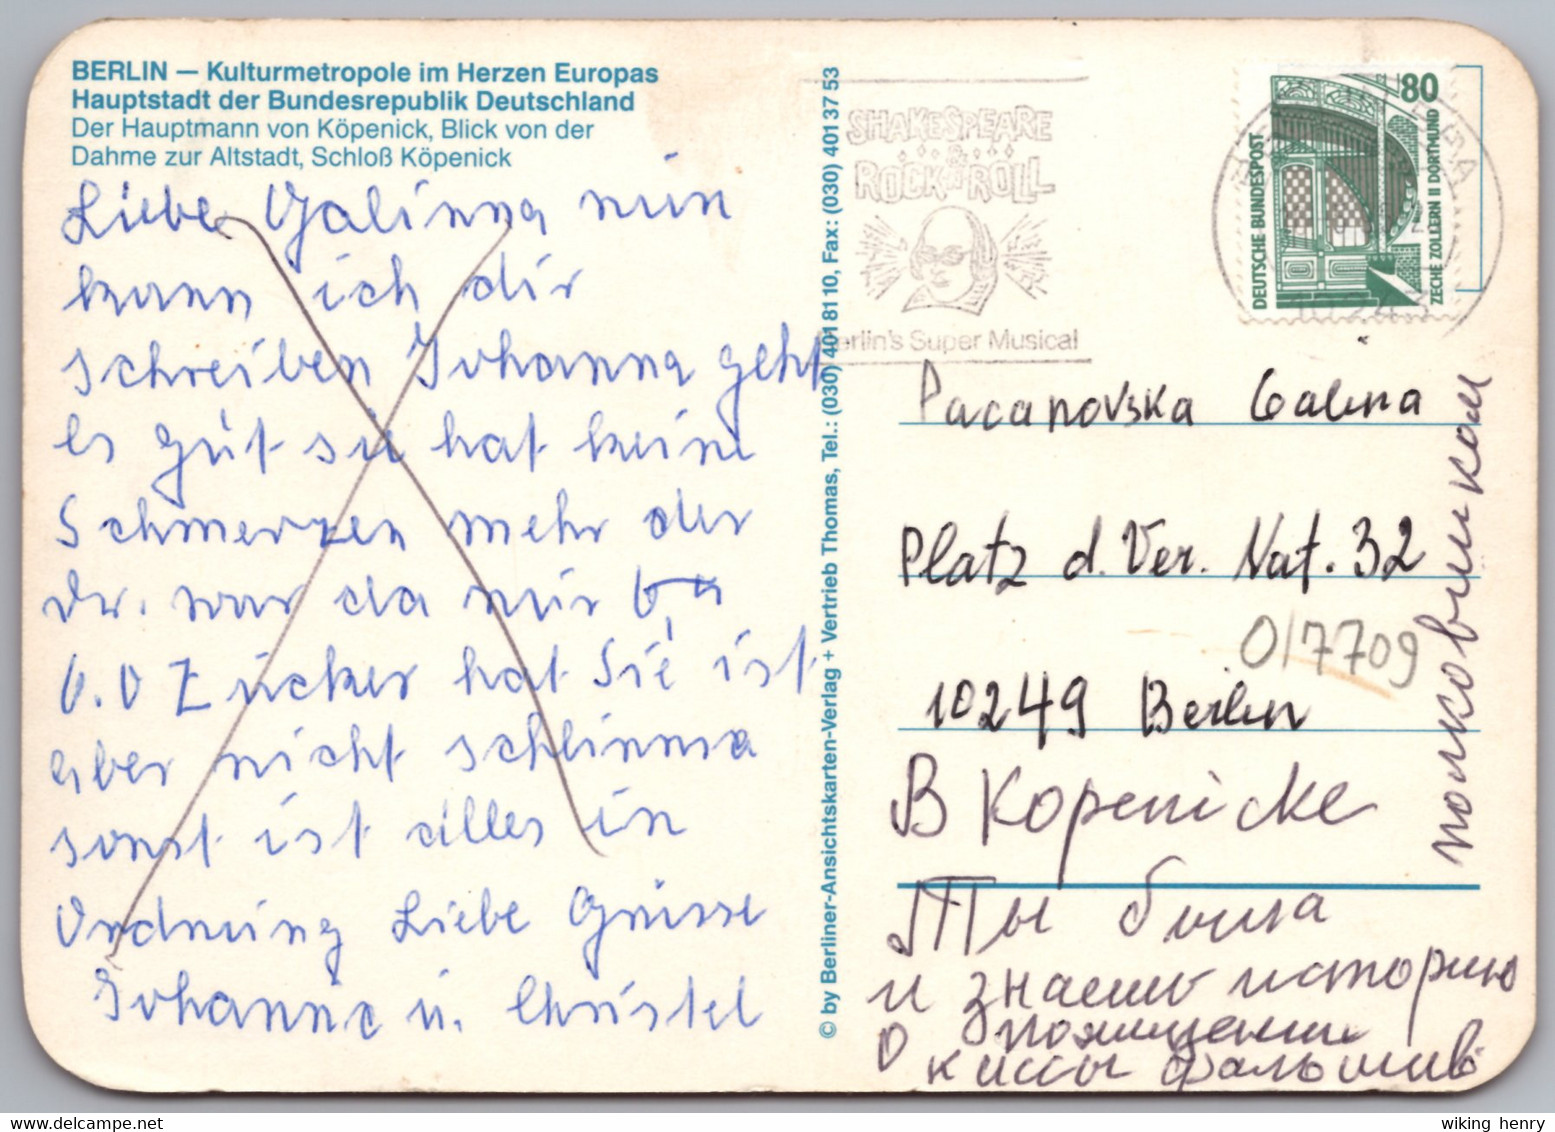 BERLIN — Kulturmetropole im Herzen Europas
Hauptstadt der Bundesrepublik Deutschland
Der Hauptmann von Köpenick, Blick von der
Dahme zur Altstadt, Schloß Köpenick
Liebe Galinna nun
kann ich dir
schreiben Johanna geht
es gut sie hat keine
Schmerzen mehr der
Dr. war da nur
Zücker hat Sie ist
aber nicht schlimm
sonst ist alles in
Ordnung Liebe Grüsse
Johanna u. Christel
© by Berliner-Ansichtskarten-Verlag + Vertrieb Thomas, Tel.: (030) 401 81 10, Fax: (030) 401 37 53
SHAKESPEARE
&
ROCK'N'ROLL
Berlin's Super Musical
80
DEUTSCHE BUNDESPOST
ZECHE ZOLLERN II DORTMUND
Pacanovska Galina
Platz d. Ver. Nat. 32
017709
10249 Berlin
В Kopenicke
Ты была
и знаешь историю
о похищении
кассы фальшив
полковником
wiking henry